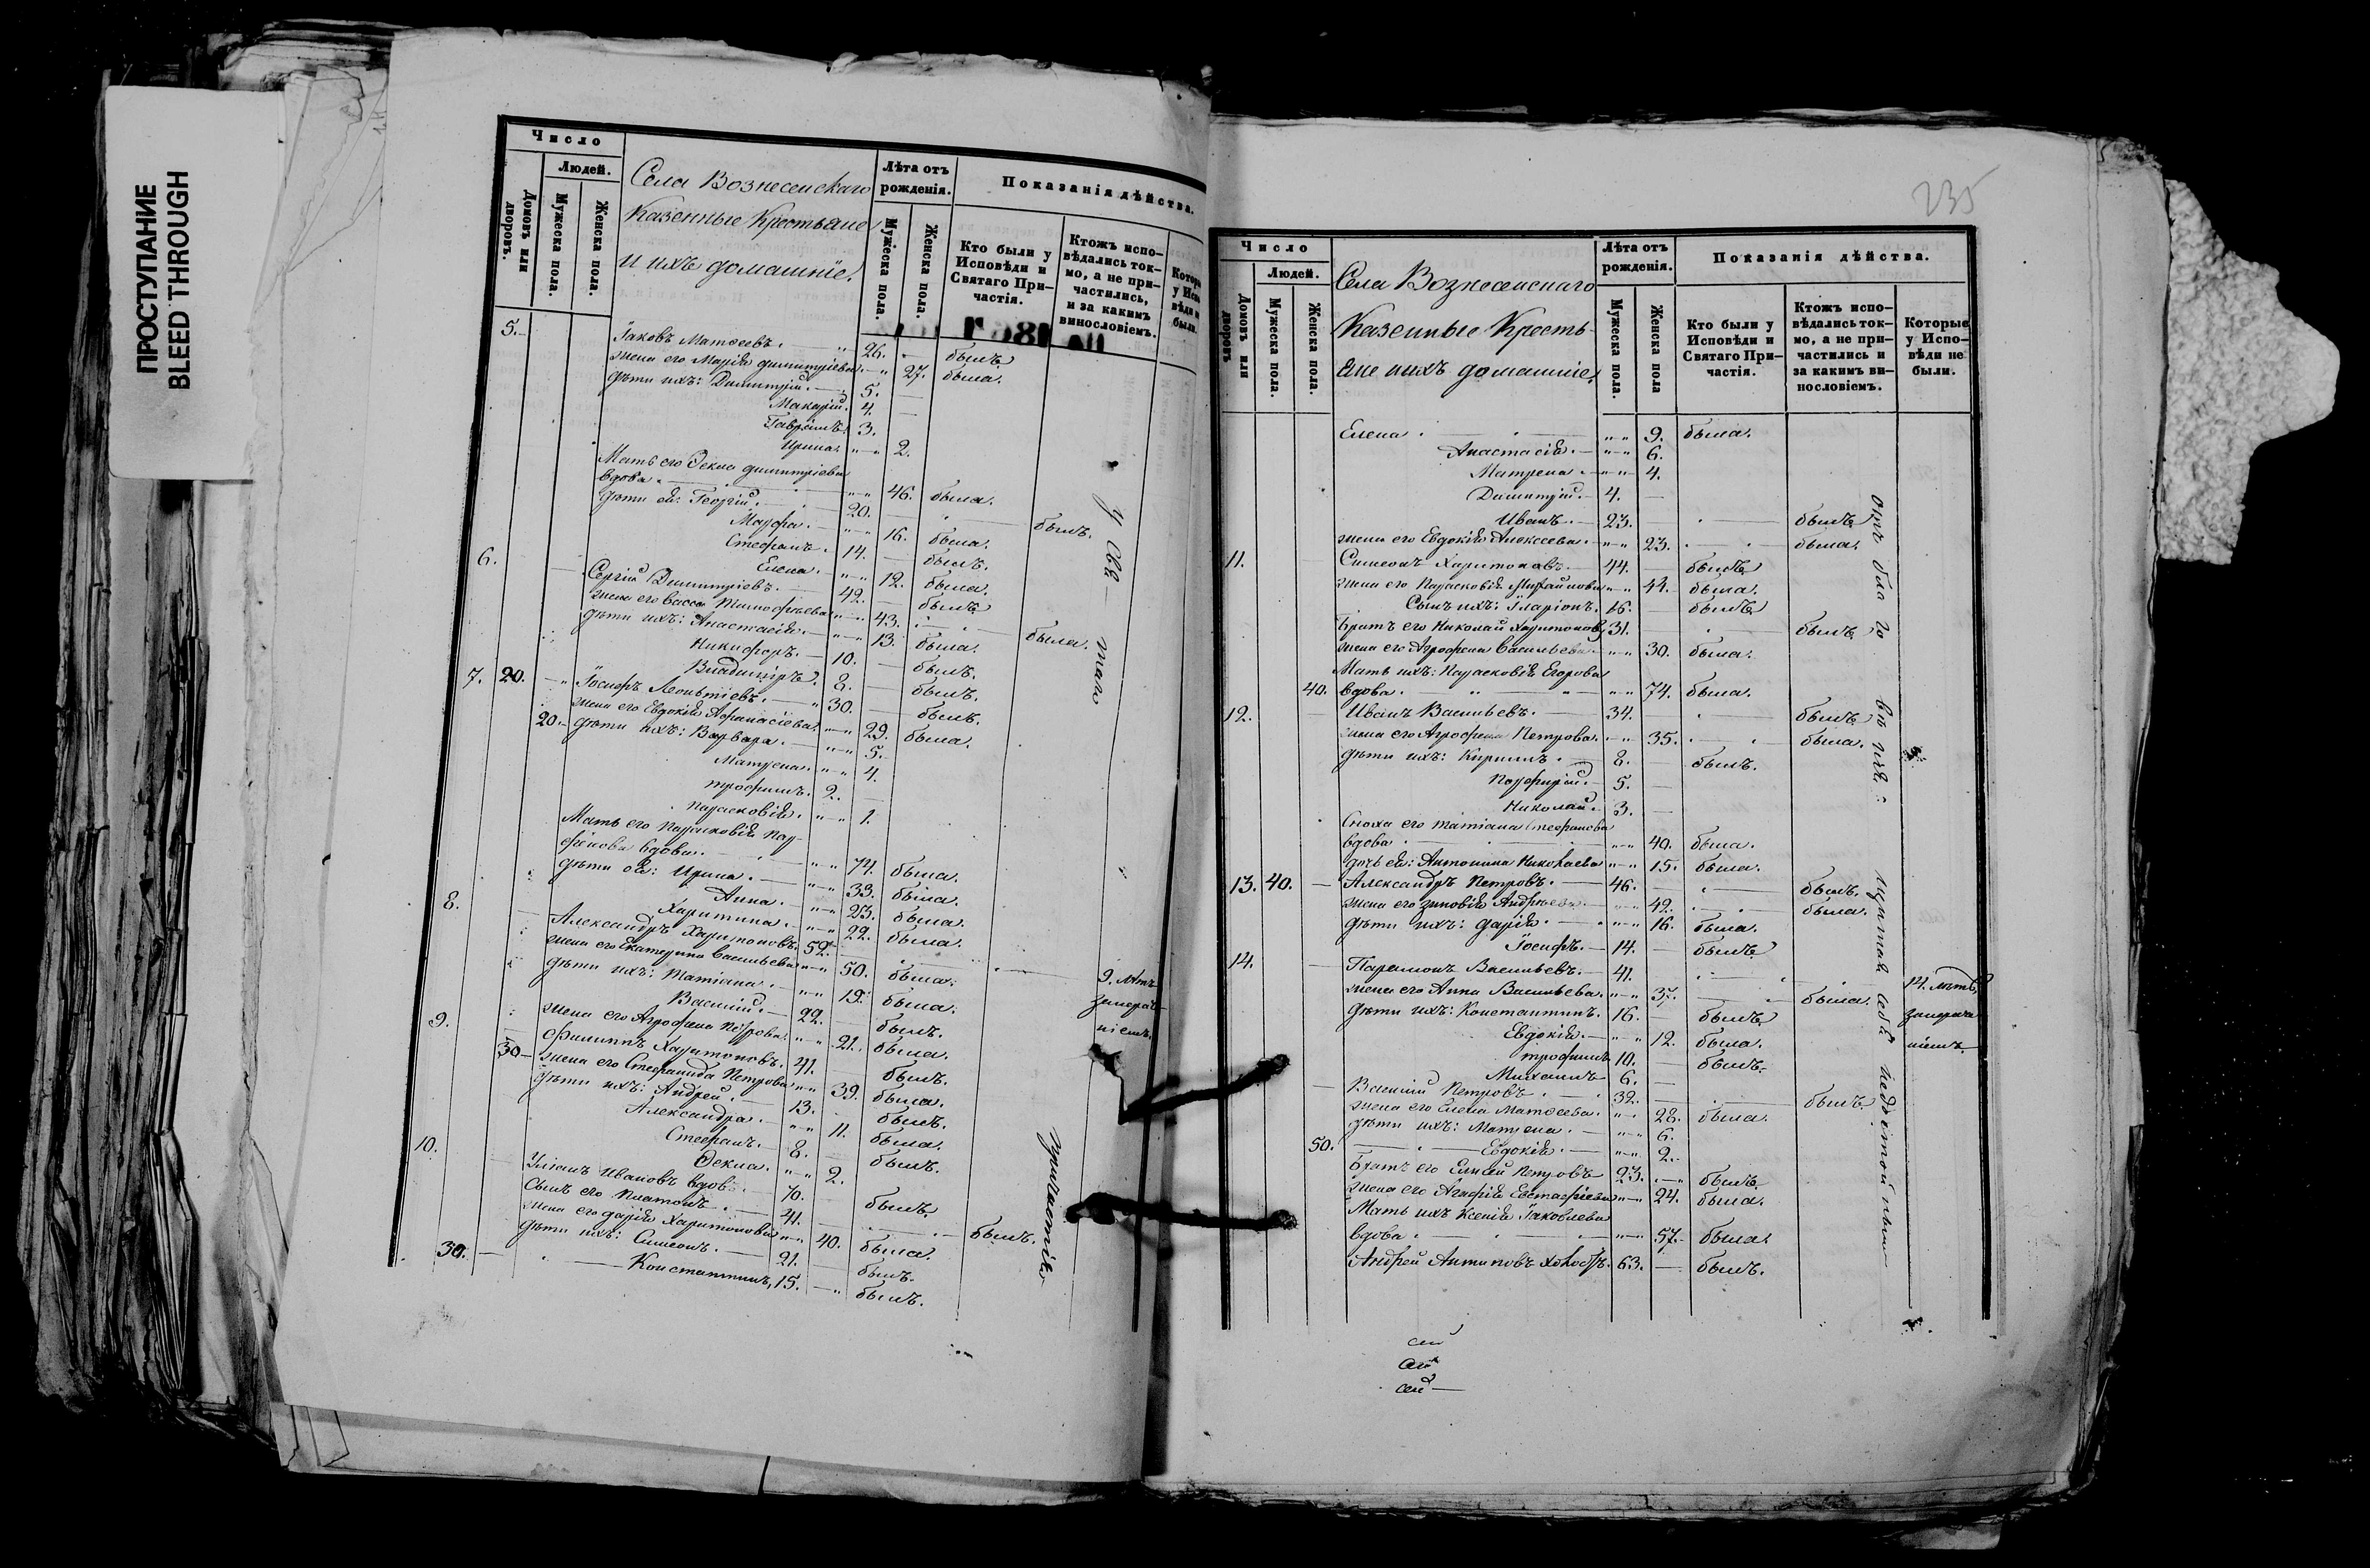 ПРОСТУПАНИЕ
BLEED THROUGH
Число
Людей.
Домовъ или дворовъ.
Мужеска пола.
Женска пола.
Села Вознесенскаго
Казенные Крестьяне
и ихъ домашніе.
Лѣта отъ рожденія.
Мужеска пола.
Женска пола.
Показанія дѣйства.
Кто были у Исповѣди и Святаго При-
частія.
Ктожъ испо-
вѣдались ток-
мо, а не при-
частились,
и за какимъ
винословіемъ.
5. Іаковъ Матѳеевъ. 26. былъ
жена его Марія Димитріева. 27. была.
дѣти ихъ: Димитрій. 5.
Макарій. 4.
Гавріилъ. 3.
Ирина. 2.
Мать его Ѳекла Димитріева
вдова. 46. была.
дѣти ея: Георгій. 20. былъ.
Марфа. 16. была.
Стефанъ. 14. былъ.
Елена. 12. была.
6. Сергій Димитріевъ. 42. былъ
жена его Васса Тимофѣева 43. была.
дѣти ихъ: Анастасія. 13. была.
Никифоръ. 10. былъ.
Владиміръ. 8. былъ.
7. 20. Іосифъ Леонтіевъ. 30. былъ.
жена его Евдокія Афанасіева. 29. была.
20. дѣти ихъ: Варвара. 5.
Матрена. 4.
Трофимъ. 2.
Параскевія. 1.
Мать его Параскевія Пар-
фенова вдова. 74. была.
дѣти ея: Ирина. 33. была.
Анна. 23. была.
Харитина. 22. была.
8. Александръ Харитоновъ. 52. 9. лѣтъ
жена его Екатерина Васильева 50. была.
дѣти ихъ: Татіана. 19. была.
Василій. 22. былъ.
жена его Агрофена Петрова. 21. была.
9. Филиппъ Харитоновъ. 41. былъ.
30 жена его Стефанида Петрова 39. была.
дѣти ихъ: Андрей. 13. былъ.
Александра. 11. была.
Стефанъ. 8. былъ.
Ѳекла. 2.
10. Иванов вдовъ. 70. былъ.
Сынъ его Платонъ. 41. былъ.
жена его Дарія Харитонова 40. была.
дѣти ихъ: Симеонъ. 21. былъ.
30. Константинъ, 15. былъ.
235
Число
Людей.
Домовъ или дворовъ
Мужеска пола.
Женска пола.
Села Вознесенскаго
Казенные Кресть-
яне и ихъ домашніе.
Лѣта отъ рожденія.
Мужеска пола.
Женска пола
Показанія дѣйства.
Кто были у Исповѣди и Святаго При-
частія.
Ктожъ испо-
вѣдались ток-
мо, а не при-
частились и
за какимъ ви-
нословіемъ.
Которые
у Испо-
вѣди не
были.
Елена. 9. была.
Анастасія. 6.
Матрена. 4.
Димитрій. 4.
Иванъ. 23. былъ
жена его Евдокія Алексеева. 23. была.
11. Симеонъ Харитоновъ. 44. былъ
жена его Параскевія Михайлова 44. была.
Сынъ ихъ: Иларіонъ. 16. былъ
Братъ его Николай Харитоновъ 31. былъ
жена его Агрофена Васильева 30. была.
Мать ихъ: Параскевія Егорова
40. вдова. 74. была.
12. Иванъ Васильевъ. 34. былъ
жена его Агрофена Петрова. 35. была.
дѣти ихъ: Кириллъ. 8. былъ.
Порфирій. 5.
Николай. 3.
Сноха его Татіана Стефанова
вдова 40. была.
дочь ея: Антонина Николаева 15. была.
13. 40. Александръ Петровъ. 46. былъ.
жена его Зиновія Андреева 42. была.
дѣти ихъ: Дарія. 16. была.
Іосифъ. 14. былъ
14. Парамонъ Васильевъ. 41. 14. лѣтъ
жена его Анна Васильева. 37. была.
дѣти ихъ: Константинъ. 16. былъ
Евдокія. 12. была.
Трофимъ 10. былъ.
Михаилъ 6.
Василій Петровъ. 32. былъ
жена его Елена Матѳеева. 28. была.
дѣти ихъ: Матрена. 6.
50. Евдокія. 2.
Братъ его Елисей Петровъ 23. былъ
жена его Агафія Евстафіева 24. была.
Мать ихъ Ксенія Іаковлева
вдова 57. была.
Андрей Антиповъ холостъ. 63. былъ.